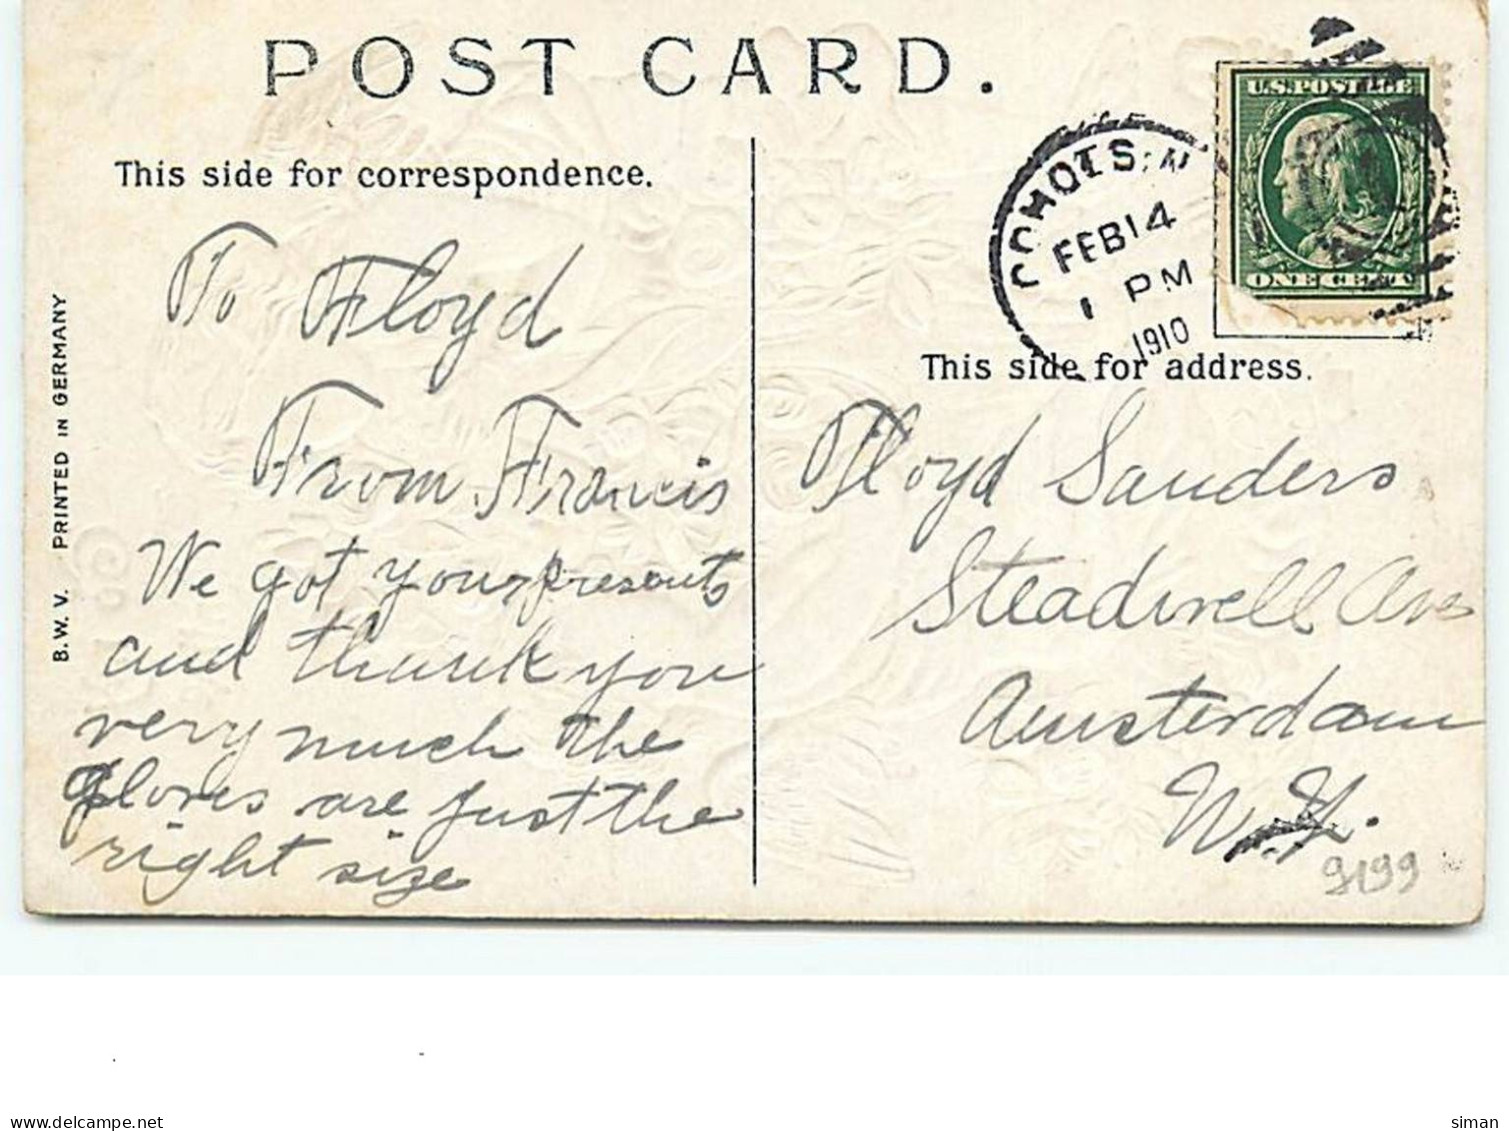 POST CARD.
This side for correspondence.
To Floyd
From Francis
We got your presents
and thank you
very much the
gloves are just the
right size
B. W. V. PRINTED IN GERMANY
COHOES, N
FEB 14
1 PM
1910
U.S. POSTAGE
ONE CENT
This side for address.
Floyd Sanders
Steadwell Ave
Amsterdam
N.Y.
9199
delcampe.net
siman